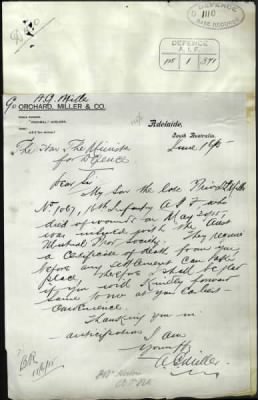 DEFENCE
1110
BASE RECORDS
DEFENCE
A.I.F.
A.G. Miller
c/o ORCHARD, MILLER & CO.
Adelaide,
South Australia.
June 1915
The Hon The Minister
for Defence
Dear Sir
My Son the late Priv
No 1067, 16th Infantry A I F who
died of wounds on May
was insured with the Aust
Mutual Prov Society. They require
a Certificate of death from you
before any settlement can take
place. Therefore I shall be glad
if you will Kindly forward
same to me at your earliest
convenience.
Thanking you in
anticipation
I am
Yours
Miller